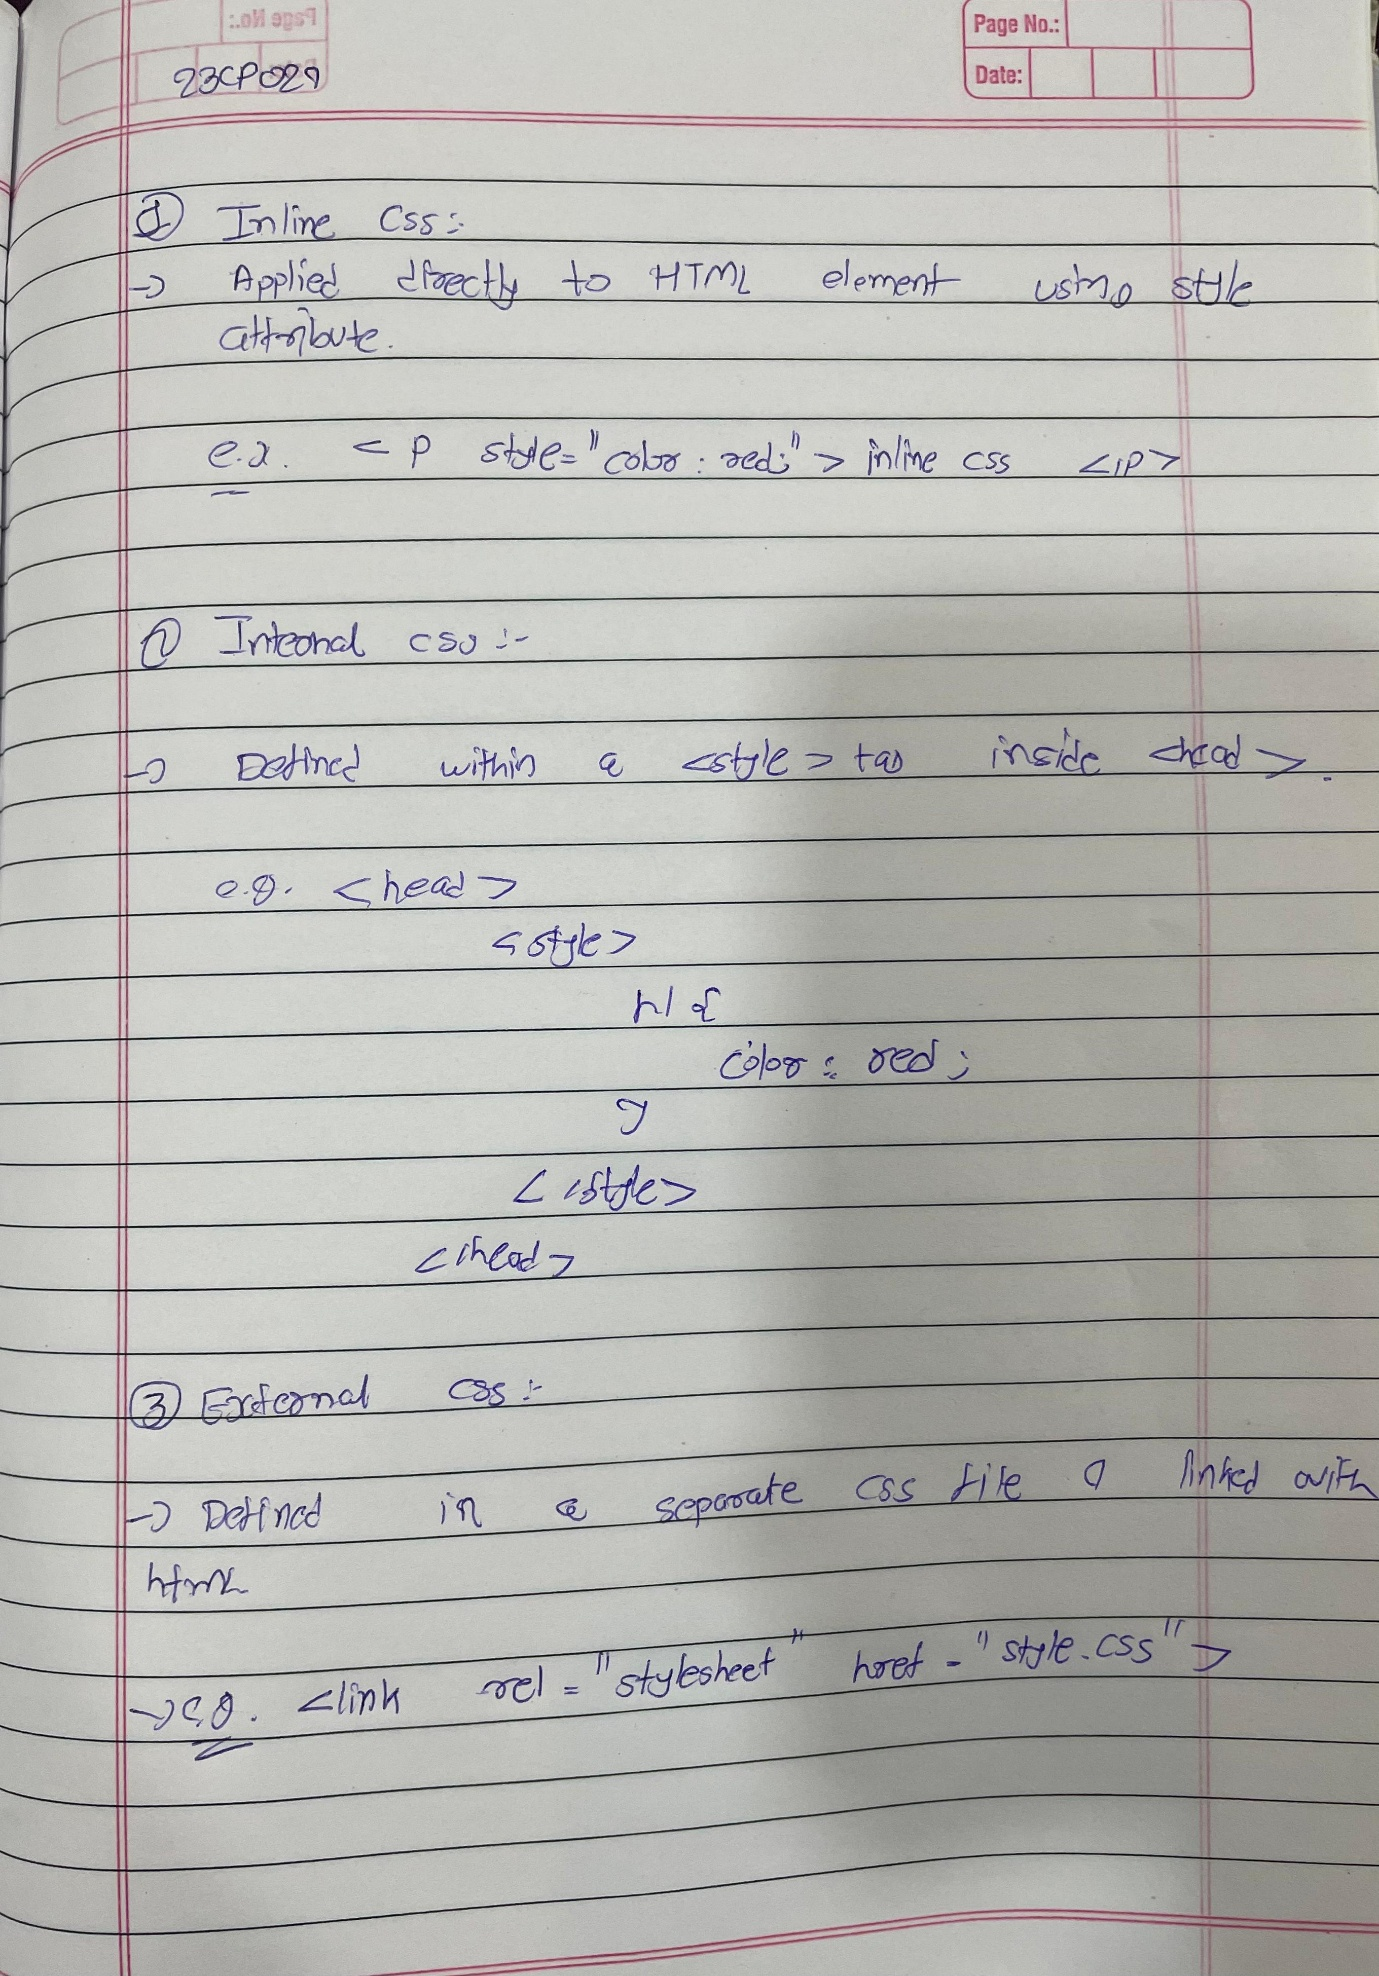 Page No.:
Date:
23CP029
① Inline CSS :-
→ Applied directly to HTML element using style
attribute.
e.x. < p style="color : red;" > inline css </p>
② Internal css :-
→ Defined within a <style> tag inside <head>.
e.g. <head>
<style>
h1 {
color : red ;
}
</style>
</head>
③ External css :-
→ Defined in a separate css file & linked with
html
→ e.g. <link rel = "stylesheet" href = "style.css" >